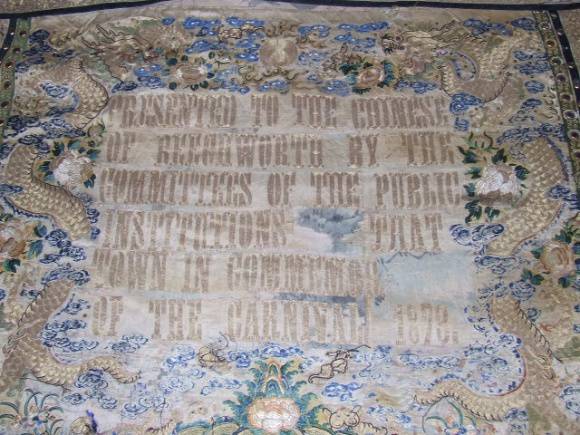 PRESENTED TO THE CHINESE
OF BEECHWORTH BY THE
COMMITTEES OF THE PUBLIC
INSTITUTIONS THAT
TOWN IN COMMEMO
OF THE CARNIVAL 1873.